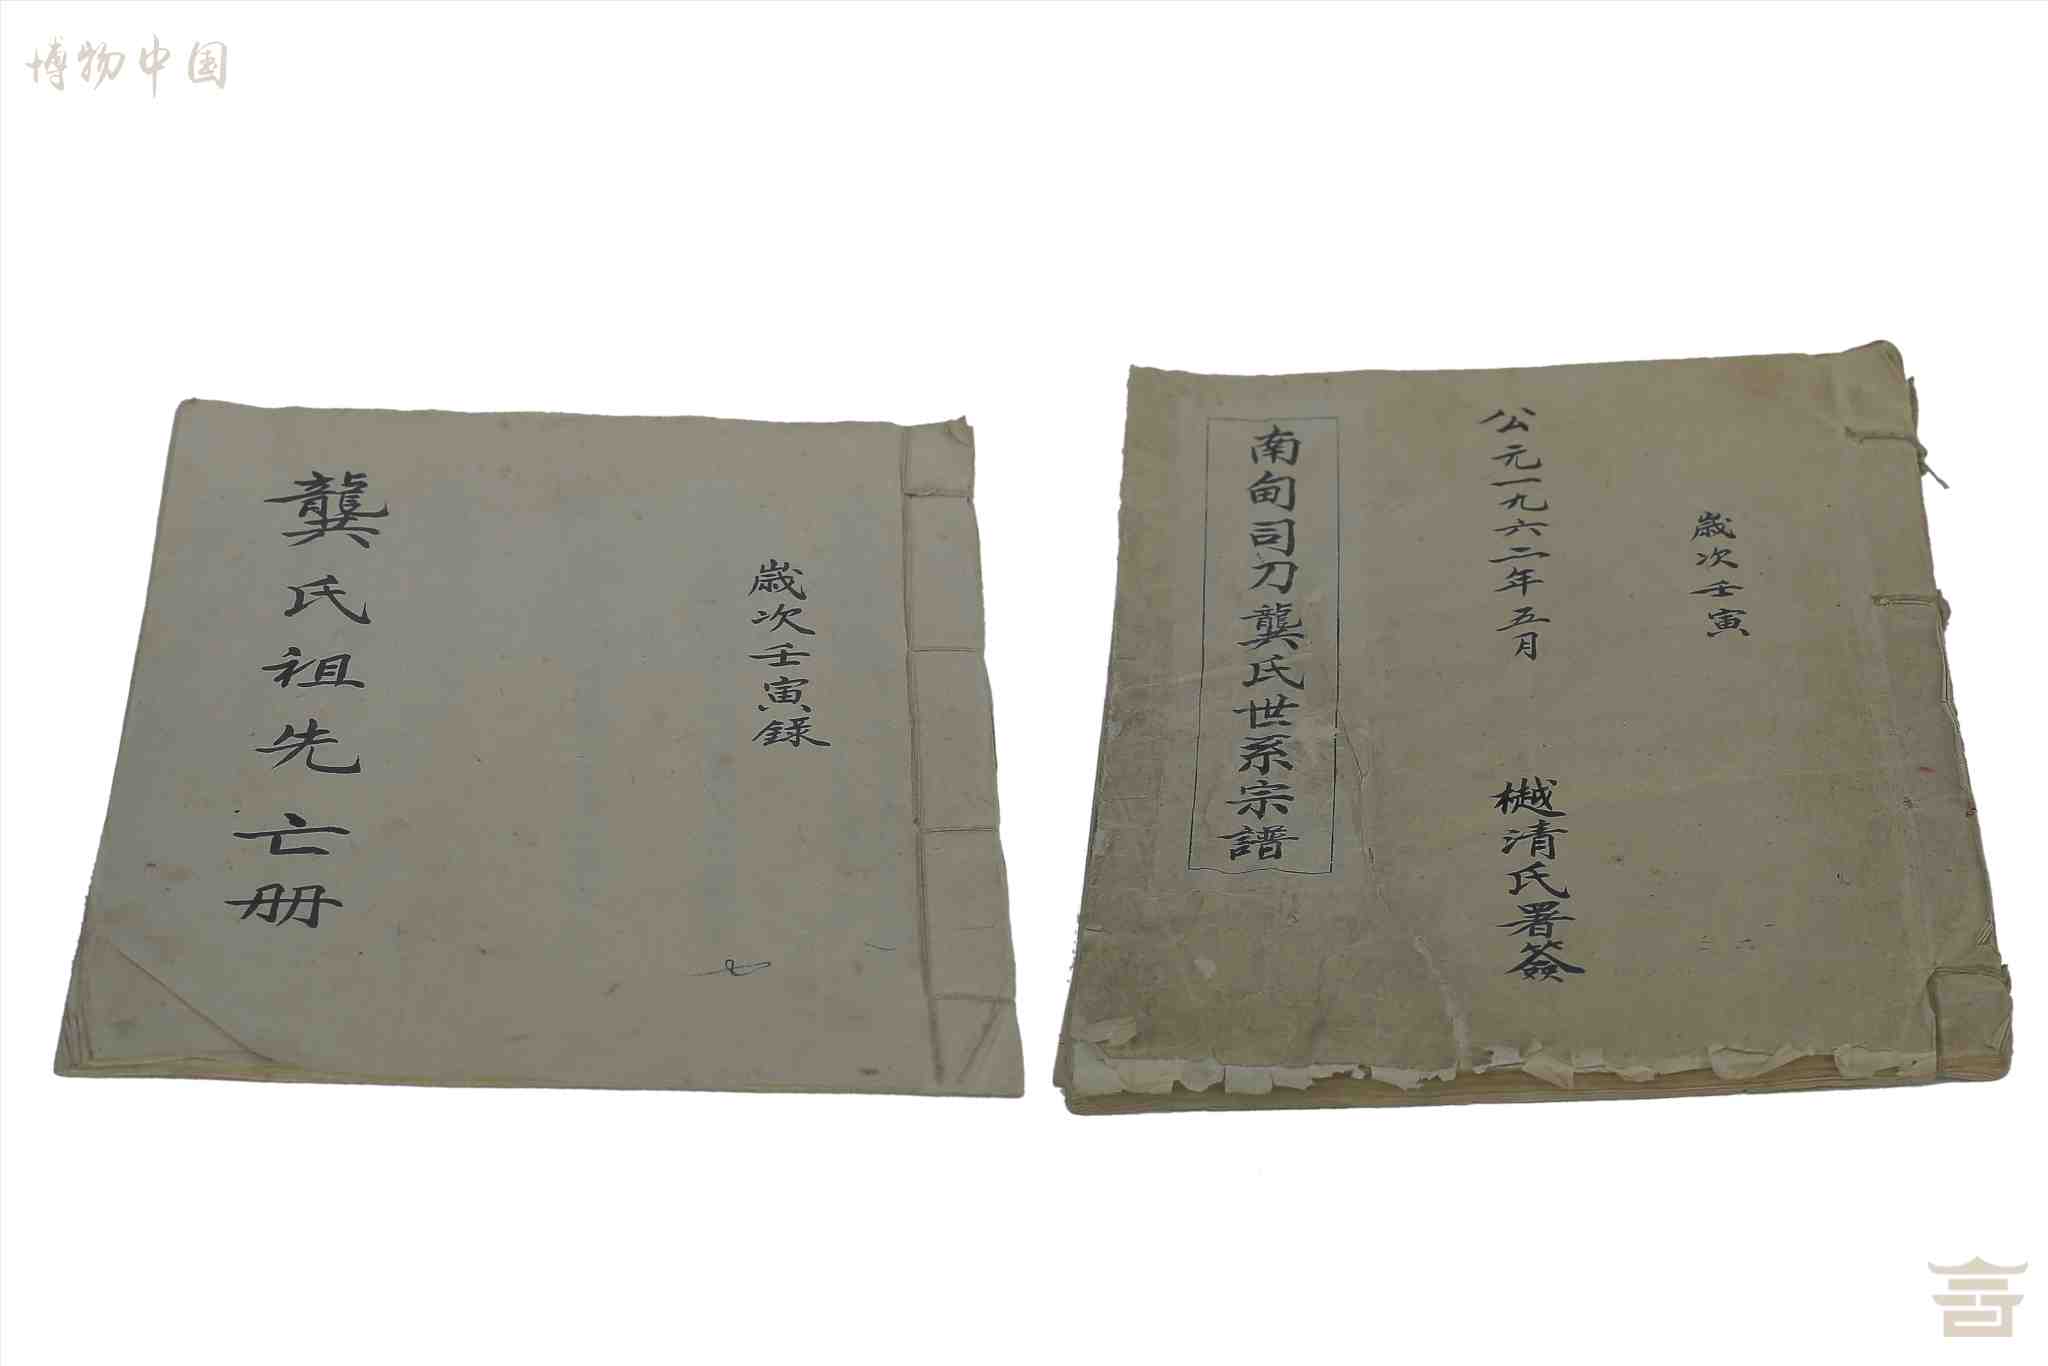 博物中国
歲次壬寅錄
龔氏祖先亡册
歲次壬寅
公元一九六二年五月
樾清氏署簽
南甸司刀龔氏世系宗譜